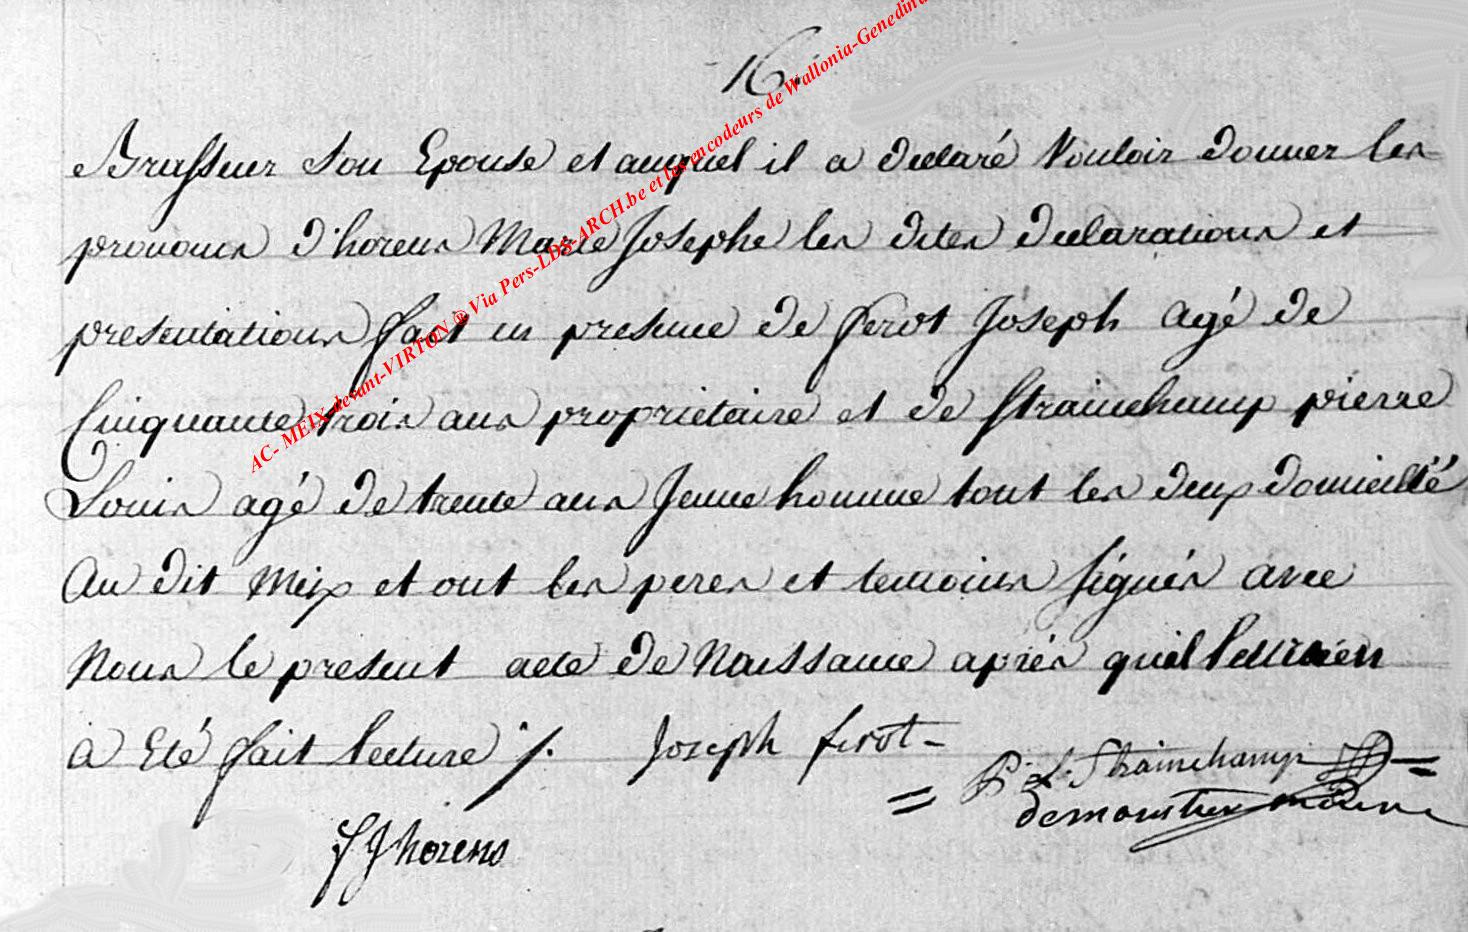 16.
Brasseur son Epouse et auquel il a declaré Vouloir donner les
prenoms d'horens Marie Josephe les dites declarations et
presentations fait en presence de ferot Joseph agé de
Cinquante trois ans proprietaire et de Strainchamp pierre
Louis agé de trente ans Jeune homme tout les deux domicilié
Au dit Meix et ont les peres et temoins signés avec
Nous le present acte de Naissance après quil leur en
a Eté fait lecture ./.    Joseph ferot
P. L. Strainchamp
demoustier maire
horens
AC- MEIX-devant-VIRTON ® Via Pers-LDS-ARCH.be et les encodeurs de Wallonia-Genedin